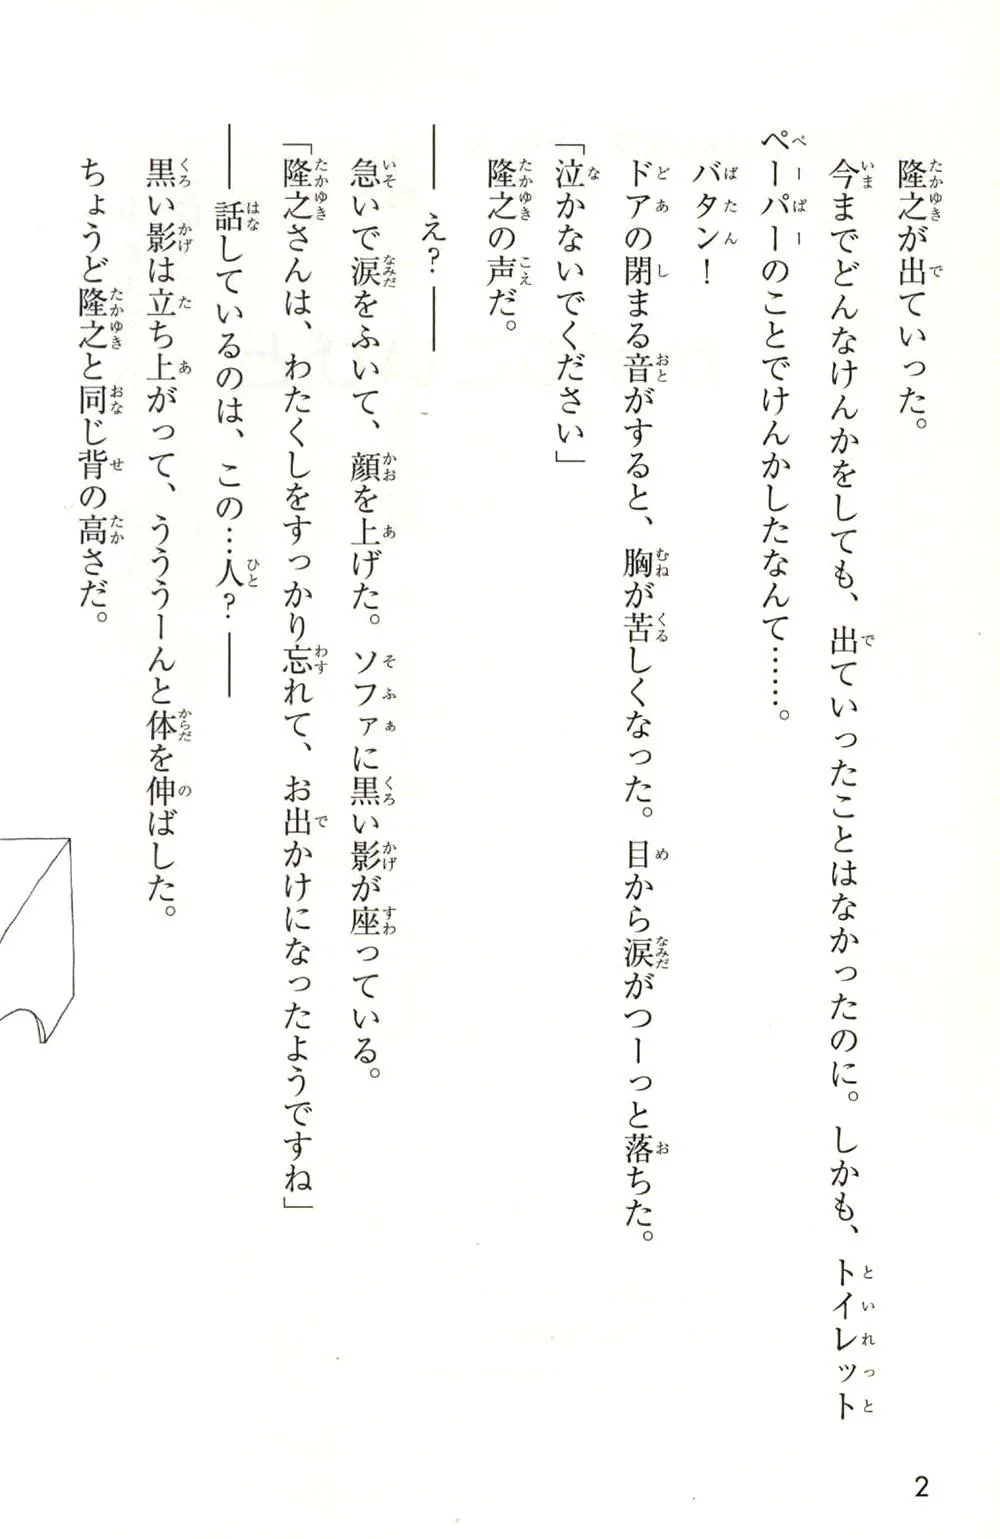 隆之が出ていった。
今までどんなけんかをしても、出ていったことはなかったのに。しかも、トイレット
ペーパーのことでけんかしたなんて……。
バタン！
ドアの閉まる音がすると、胸が苦しくなった。目から涙がつーっと落ちた。
「泣かないでください」
隆之の声だ。
――え？――
急いで涙をふいて、顔を上げた。ソファに黒い影が座っている。
「隆之さんは、わたくしをすっかり忘れて、お出かけになったようですね」
――話しているのは、この…人？――
黒い影は立ち上がって、うううーんと体を伸ばした。
ちょうど隆之と同じ背の高さだ。
2